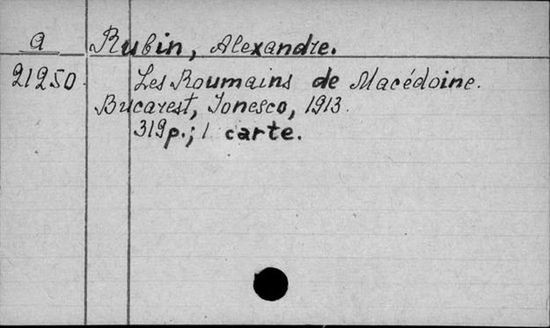 a Rubin, Alexandre.
21250. Les Roumains de Macédoine.
Bucarest, Ionesco, 1913.
319p.; 1 carte.